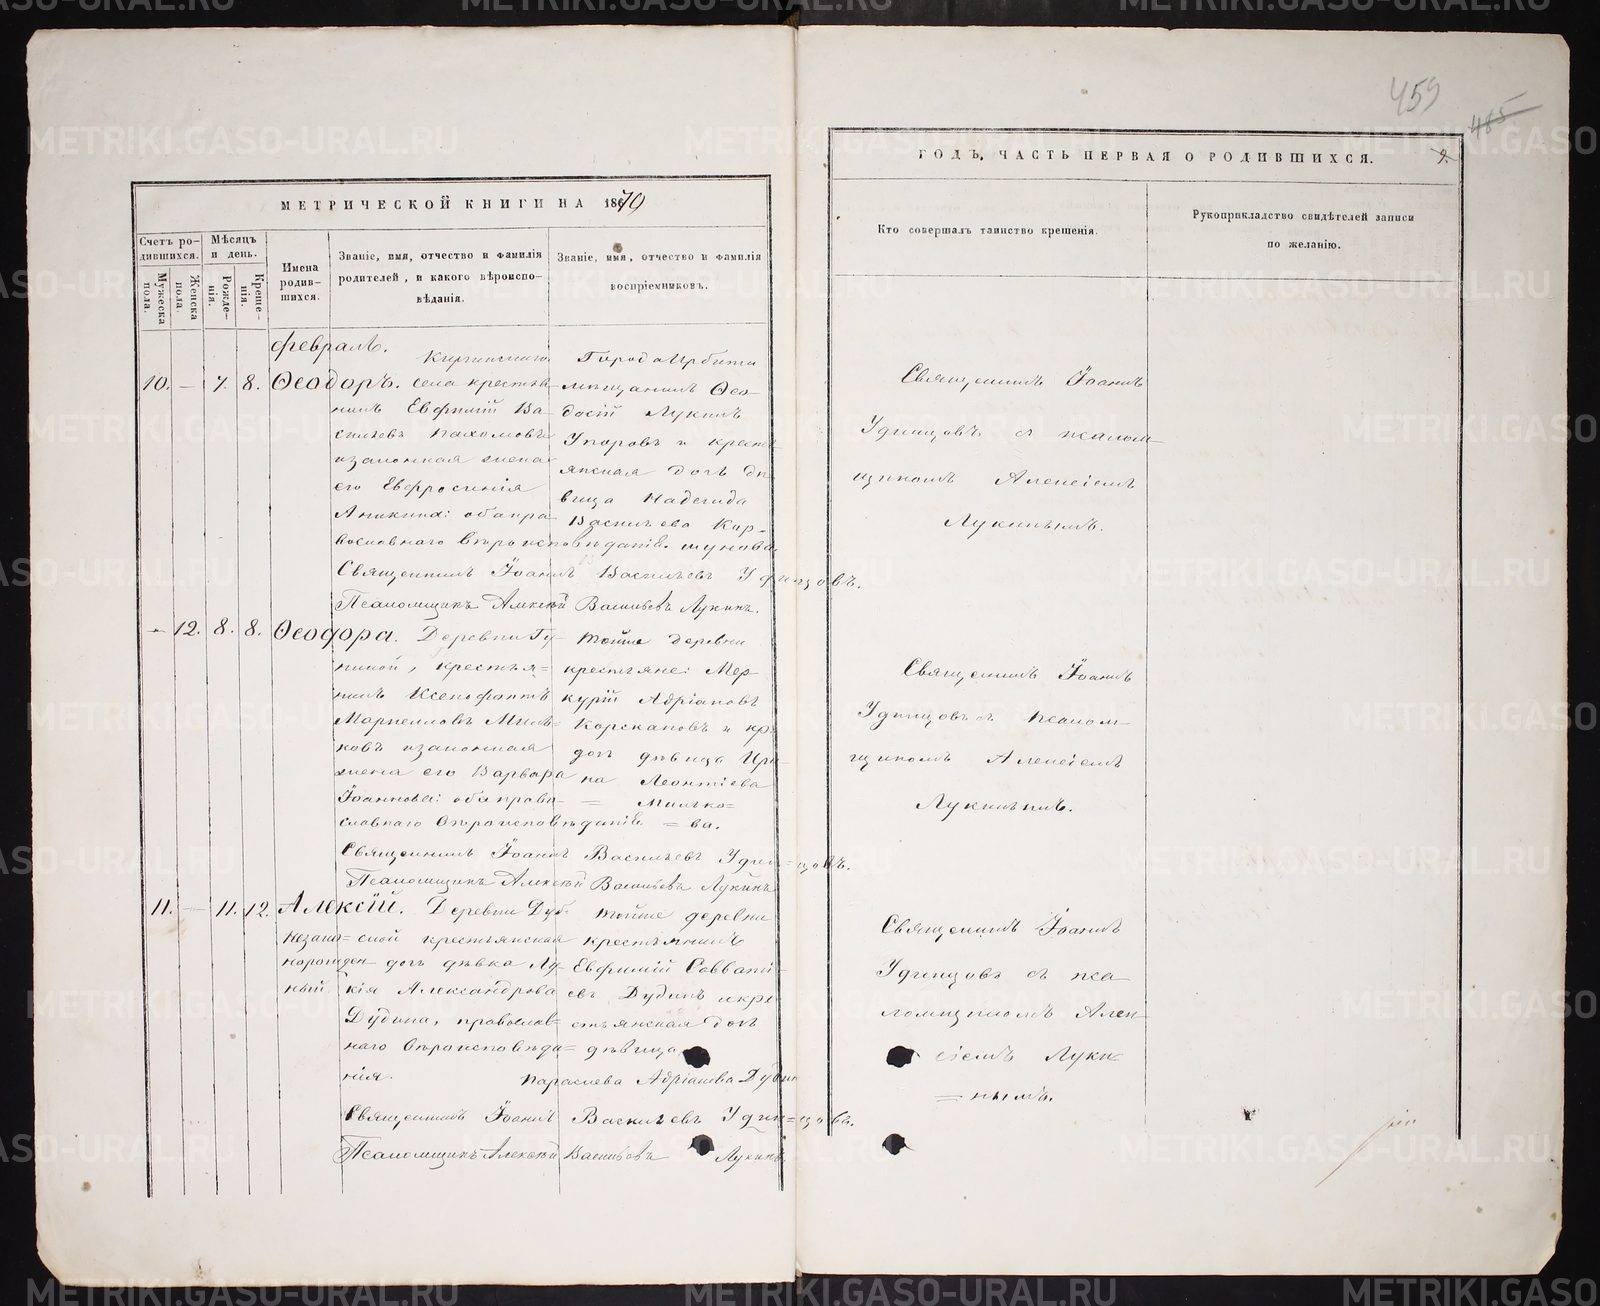 459
485
МЕТРИЧЕСКОЙ КНИГИ НА 1870
ГОДЪ, ЧАСТЬ ПЕРВАЯ О РОДИВШИХСЯ.
9.
Счетъ ро-
дившихся.
Мужеска пола.
Женска пола.
Мѣсяцъ
и день.
Рожде-
нія.
Креще-
нія.
Имена
родив-
шихся.
Званіе, имя, отчество и фамилія
родителей, и какого вѣроиспо-
вѣданія.
Званіе, имя, отчество и фамилія
воспріемниковъ.
Кто совершалъ таинство крещенія.
Рукоприкладство свидѣтелей записи
по желанію.
февраль.
10. — 7. 8. Ѳеодоръ.
села крестья-
нинъ Евфимій Ва-
сильевъ Пахомовъ
изаконная жена
его Евфросинія
Аникина: оба пра-
вославнаго вѣроисповѣданія.
Города Ирбита
мѣщанинъ Ѳео-
досій Лукинъ
Упоровъ и кресть
янская дочь дѣ
вица Надежда
Васильева Кор-
шунова
Священникъ Іоаннъ Васильевъ Удинцовъ.
Псаломщикъ Алексѣй Васильевъ Лукинъ.
Священникъ Іоаннъ
Удинцовъ съ псалом
щикомъ Алексіемъ
Лукинымъ.
— 12. 8. 8. Ѳеодора.
Деревни Гу-
ниной, крестья=
нинъ Ксенофонтъ
Маркелловъ Миль=
ковъ изаконная
жена его Варвара
Іоаннова: оба право-
славнаго вѣроисповѣданія
тойже деревни
крестьяне: Мер
курій Адріановъ
Корскановъ и кр.
дочь дѣвица Ири-
на Леонтіева
= Милько=
= ва.
Священникъ Іоаннъ Васильевъ Удин=цовъ.
Псаломщикъ Алексѣй Васильевъ Лукинъ
Священникъ Іоаннъ
Удинцовъ съ псалом-
щикомъ Алексіемъ
Лукинымъ.
11. — 11. 12. Алексій.
незакон=
норожден
ный
Деревни Дуб-
ской крестьянская
дочь дѣвка Лу-
кія Александрова
Дудина, православ=
наго вѣроисповѣда=
нія.
тойже деревни
крестьянинъ
Евфимій Савваті-
евъ Дудинъ икре
стьянская дочь
дѣвица
Параскева Адріанова Дудин
Священникъ Іоаннъ Васильевъ Удин=цовъ.
Псаломщикъ Алексѣй Васильевъ Лукинъ
Священникъ Іоаннъ
Удинцовъ съ пса
ломщикомъ Алек-
сіемъ Луки
= нымъ.
METRIKI.GASO-URAL.RU